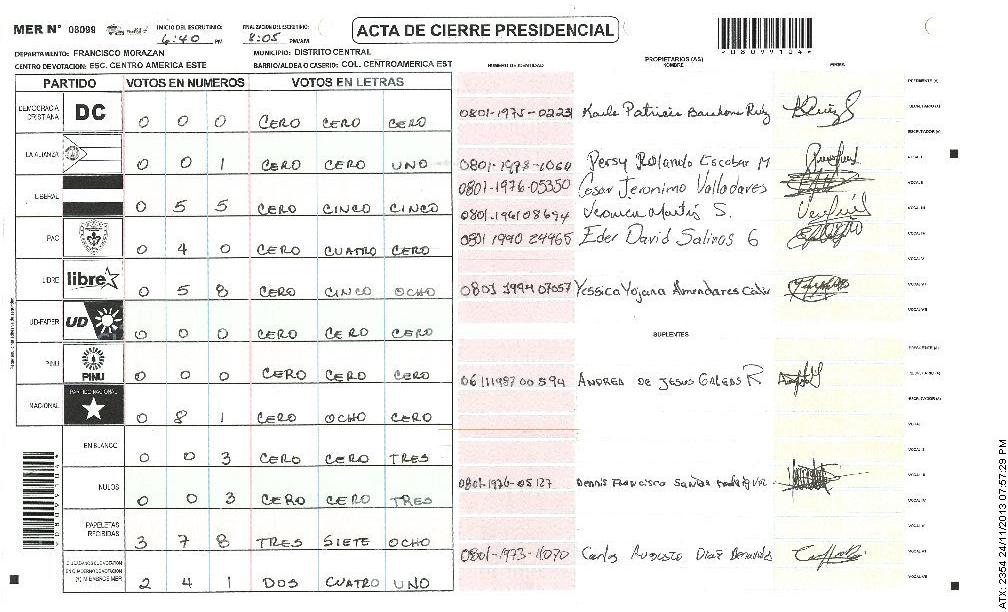 MER Nº 08099
INICIO DEL ESCRUTINIO: 6:40 PM
FINALIZACION DEL ESCRUTINIO: 8:05 PM/AM
ACTA DE CIERRE PRESIDENCIAL
DEPARTAMENTO: FRANCISCO MORAZAN MUNICIPIO: DISTRITO CENTRAL
CENTRO DE VOTACION: ESC. CENTRO AMERICA ESTE BARRIO/ALDEA O CASERIO: COL. CENTROAMERICA EST
NUMERO DE IDENTIDAD PROPIETARIOS (AS) NOMBRE FIRMA
PARTIDO VOTOS EN NUMEROS VOTOS EN LETRAS
DEMOCRACIA CRISTIANA DC 0 0 0 CERO CERO CERO
LA ALIANZA 0 0 1 CERO CERO UNO
LIBERAL 0 5 5 CERO CINCO CINCO
PAC 0 4 0 CERO CUATRO CERO
LIBRE libre 0 5 8 CERO CINCO OCHO
UD-FAPER UD 0 0 0 CERO CERO CERO
PINU PINU 0 0 0 CERO CERO CERO
NACIONAL PARTIDO NACIONAL 0 8 1 CERO OCHO CERO
EN BLANCO 0 0 3 CERO CERO TRES
NULOS 0 0 3 CERO CERO TRES
PAPELETAS RECIBIDAS 3 7 8 TRES SIETE OCHO
2 4 1 DOS CUATRO UNO
0801-1975-0223 Karla Patricia Barahona Ruiz
Persy Rolando Escobar M
0801-1976-05350 Cesar Jeronimo Valladares
0801-196108694 S.
0801 1990 24965 Eder David Salinas G
0801 1994 07057 Yessica Yojana Amendares
SUPLENTES
0611198700594 ANDREA DE JESUS GALEAS R
0801-1976-05127 Dennis Francisco
0801-1973-11070 Carlos Augusto Diaz Benavides
ATX: 2354 24/11/2013 07:57:29 PM